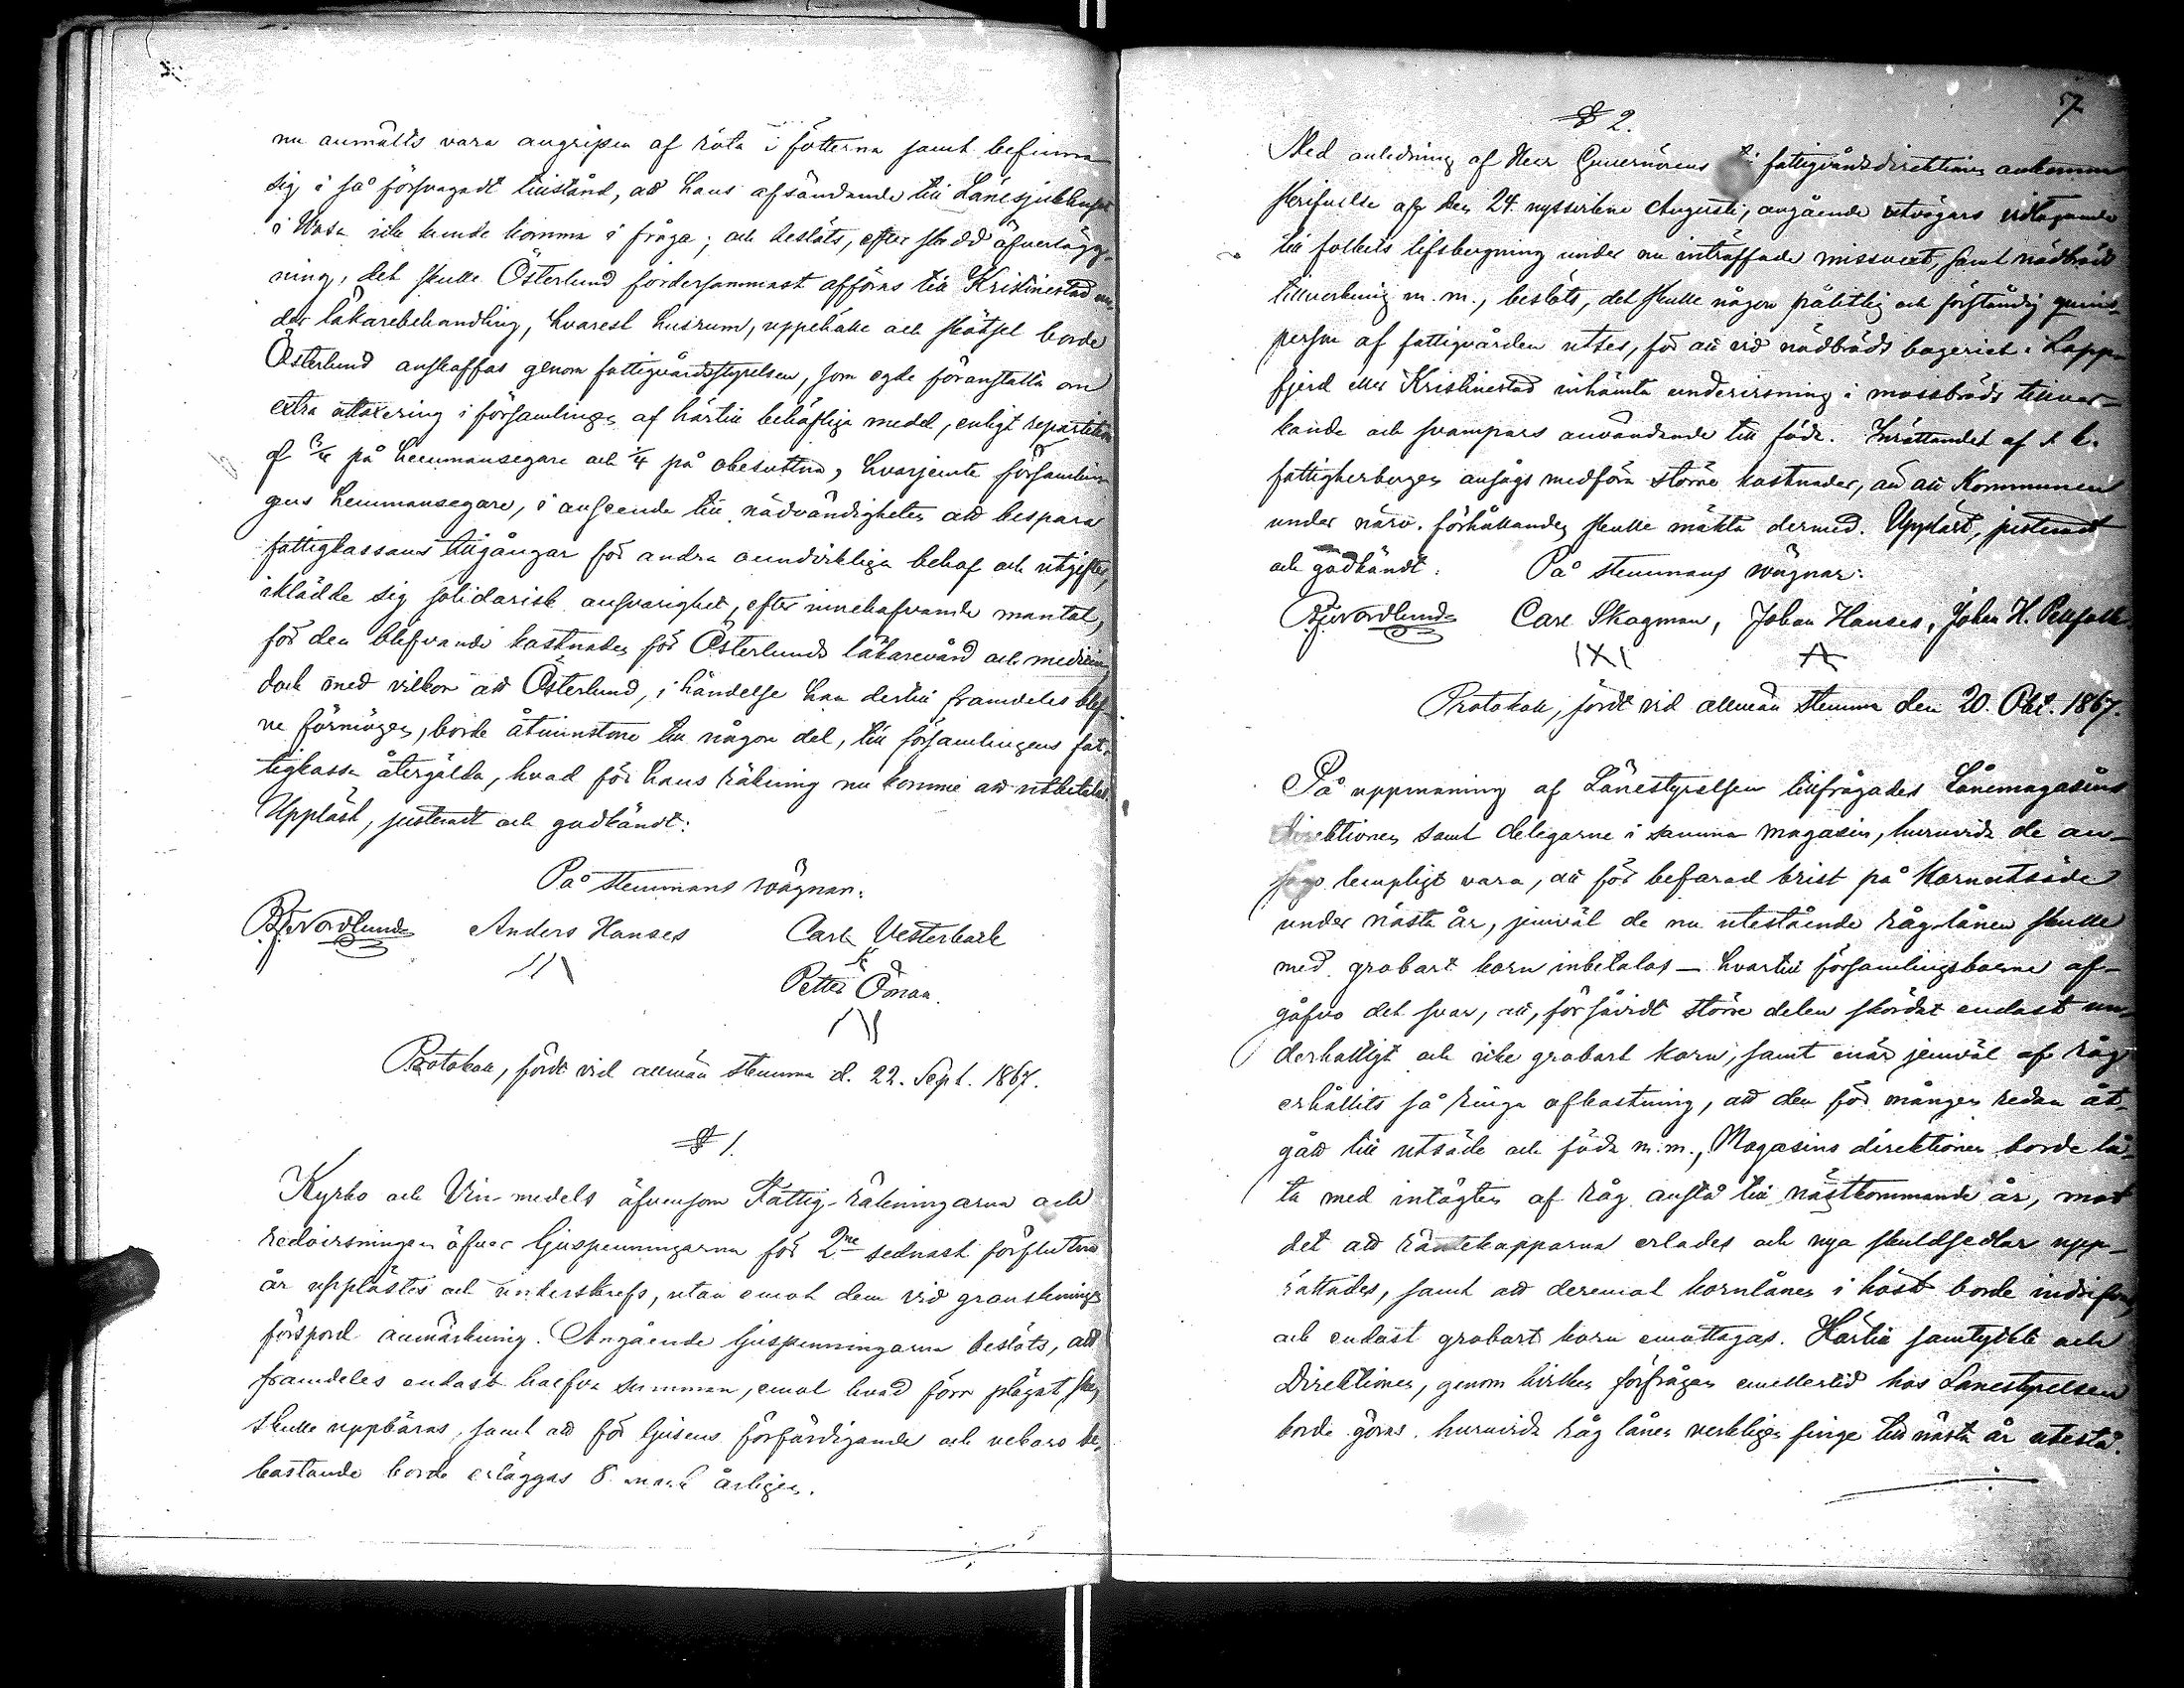 nu anmälts vara angripen af röta i fötterna samt befinna
sig i så försvagadt tillstånd, att hans afsändande till Länesjukhuset
i Wasa icke kunde komma i fråga; och beslöts, efter skedd öfverlägg-
ning, det skulle Österlund fordersammast afföras till Kristinestad un-
der läkarebehandling, hvarest husrum, uppehälle och skötsel borde
Österlund anskaffas genom fattigvårdsstyrelsen, som egde föranstalta om
extra uttaxering i församlingen af härtill behöfliga medel, enligt repartition
af 3/4 på hemmansegare och 1/4 på obesuttna, hvarjemte församlin-
gens hemmansegare, i anseende till nödvändigheten att bespara
fattigkassans tillgångar för andra oundvikliga behof och utgifter,
iklädde sig solidarisk ansvarighet, efter innehafvande mantal,
för den blifvande kostnaden för Österlunds läkarevård och medicin
dock med vilkor att Österlund, i händelse han dertill framdeles blef-
ve förmögen, borde åtminstone till någon del, till församlingens fat-
tigkassa återgälda, hvad för hans räkning nu komme att utbetalas.
Uppläst, justeradt och godkändt:
På stemmans wägnar:
Nordlund Anders Hanses Carl Vesterback
Petter Öman.
Protokoll, fördt vid allmän stemma d. 22. Sept. 1867.
§ 1.
Kyrko och Vin-medels äfvensom Fattig-räkningarna och
redovisningen öfver ljuspenningarna för 2ne sednast förflutna
år upplästes och underskrefs, utan emot dem vid granskningen
förspord anmärkning. Angående ljuspenningarna beslöts, att
framdeles endast halfva summan, emot hvad förr plägat ske,
skulle uppbäras, samt att för ljusens förfärdigande och vekars be-
kostande borde erläggas 8 mark årligen.
7
§ 2.
Med anledning af Herr Guvernörens till fattigvårdsdirektionen ankomna
skrifvelse af den 24. nyssvikne Augusti, angående utvägars vidtagande
till folkets lifsbergning under nu inträffade missvext, samt nödbröd
tillverkning m.m., beslöts, det skulle någon pålitlig och förståndig qvins-
person af fattigvården utses, för att vid nödbröds bageriet i Lapp-
fjerd eller Kristinestad inhämta undervisning i mossbröds tillver-
kande och svampars användande till föda. Inrättandet af s. k.
fattigherbergen ansågs medföra större kostnader, än att Kommunen
under närv. förhållanden skulle mäkta dermed. Uppläst, justeradt
och godkändt: På stemmans wägnar:
Nordlund Carl Skagman, Johan Hanses, Johan H. Pellfolk.
Protokoll, fördt vid allmän stemma den 20. Okt. 1867.
På uppmaning af Länestyrelsen tillfrågades Lånemagasins
direktionen samt delegarne i samma magasin, huruvida de an-
sågo lempligt vara, att för befarad brist på kornutsäde
under nästa år, jemväl de nu utestående råglånen skulle
med grobart korn inbetalas — hvartill församlingsboerne af-
gåfvo det svar, att, försåvidt större delen skördat endast un-
derhaltigt och icke grobart korn, samt enär jemväl af råg
erhållits så ringa afkastning, att den för mången redan åt-
gått till utsäde och föda m.m., Magasins direktionen borde lå-
ta med intägten af råg anstå till nästkommande år, mot
det att räntekapparna erlades och nya skuldsedlar upp-
rättades, samt att deremot kornlånen i höst borde indrifvas
och endast grobart korn emottagas. Härtill samtyckte och
Direktionen, genom hvilken förfrågan emellertid hos Länestyrelsen
borde göras, huruvida råg lånen verkligen finge till nästa år utestå.